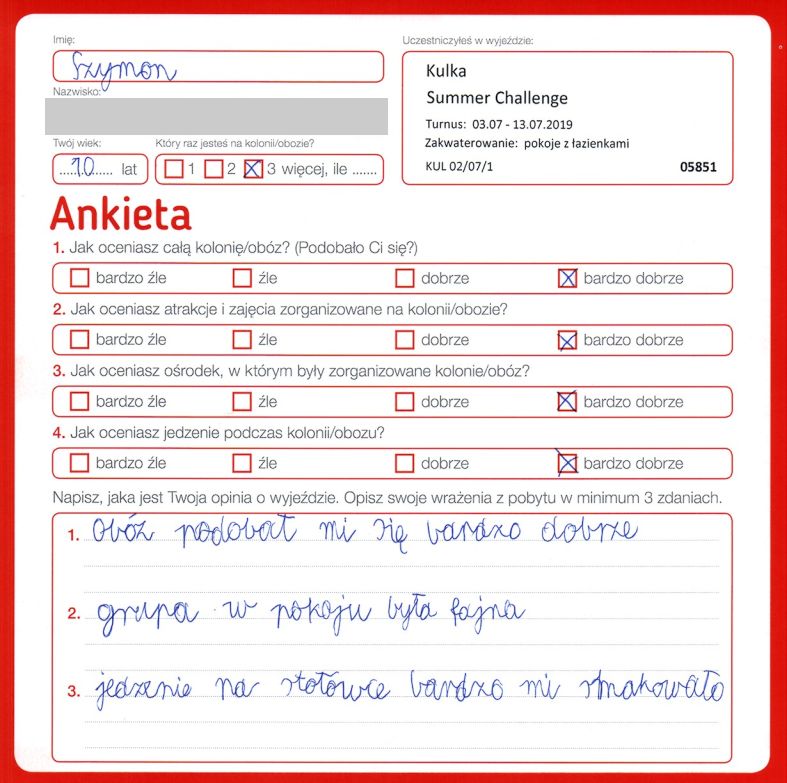 Imię:
Szymon
Nazwisko:
Twój wiek:
10 lat
Który raz jesteś na kolonii/obozie?
1 2 3 więcej, ile .......
Uczestniczyłeś w wyjeździe:
Kulka
Summer Challenge
Turnus: 03.07 - 13.07.2019
Zakwaterowanie: pokoje z łazienkami
KUL 02/07/1 05851
Ankieta
1. Jak oceniasz całą kolonię/obóz? (Podobało Ci się?)
bardzo źle źle dobrze bardzo dobrze
2. Jak oceniasz atrakcje i zajęcia zorganizowane na kolonii/obozie?
bardzo źle źle dobrze bardzo dobrze
3. Jak oceniasz ośrodek, w którym były zorganizowane kolonie/obóz?
bardzo źle źle dobrze bardzo dobrze
4. Jak oceniasz jedzenie podczas kolonii/obozu?
bardzo źle źle dobrze bardzo dobrze
Napisz, jaka jest Twoja opinia o wyjeździe. Opisz swoje wrażenia z pobytu w minimum 3 zdaniach.
1. Obóz podobał mi się bardzo dobrze
2. grupa w pokoju była fajna
3. jedzenie na stołówce bardzo mi smakowało